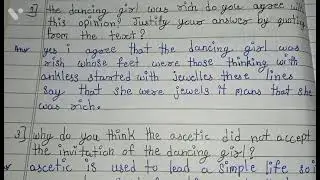 3] the dancing girl was rich do you agree with
this opinion? Justify your answer by quoting
from the text?
Ans yes i agree that the dancing girl was
rish whose feet were those thinking with
ankless started with Jewelles these lines
say that she were jewels it means that she
was rich.
3] why do you think the ascetic did not accept
the invitation of the dancing girl?
ascetic is used to lead a simple life so i